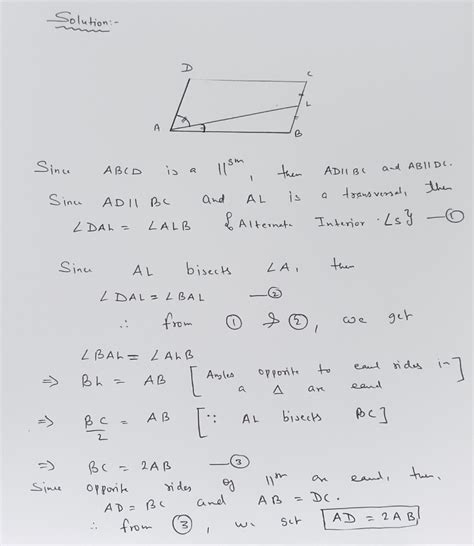 Solution:-
D
C
L
A
B
Since ABCD is a ||gm, then AD||BC and AB||DC.
Since AD||BC and AL is a transversal, then
∠DAL = ∠ALB {Alternate Interior ∠s} —①
Since AL bisects ∠A, then
∠DAL = ∠BAL —②
∴ from ① & ②, we get
∠BAL = ∠ALB
⇒ BL = AB [Angles opposite to equal sides in
a Δ are equal]
⇒ BC/2 = AB [∵ AL bisects BC]
⇒ BC = 2AB —③
Since opposite sides of ||gm are equal, then,
AD = BC and AB = DC.
∴ from ③, we get AD = 2AB